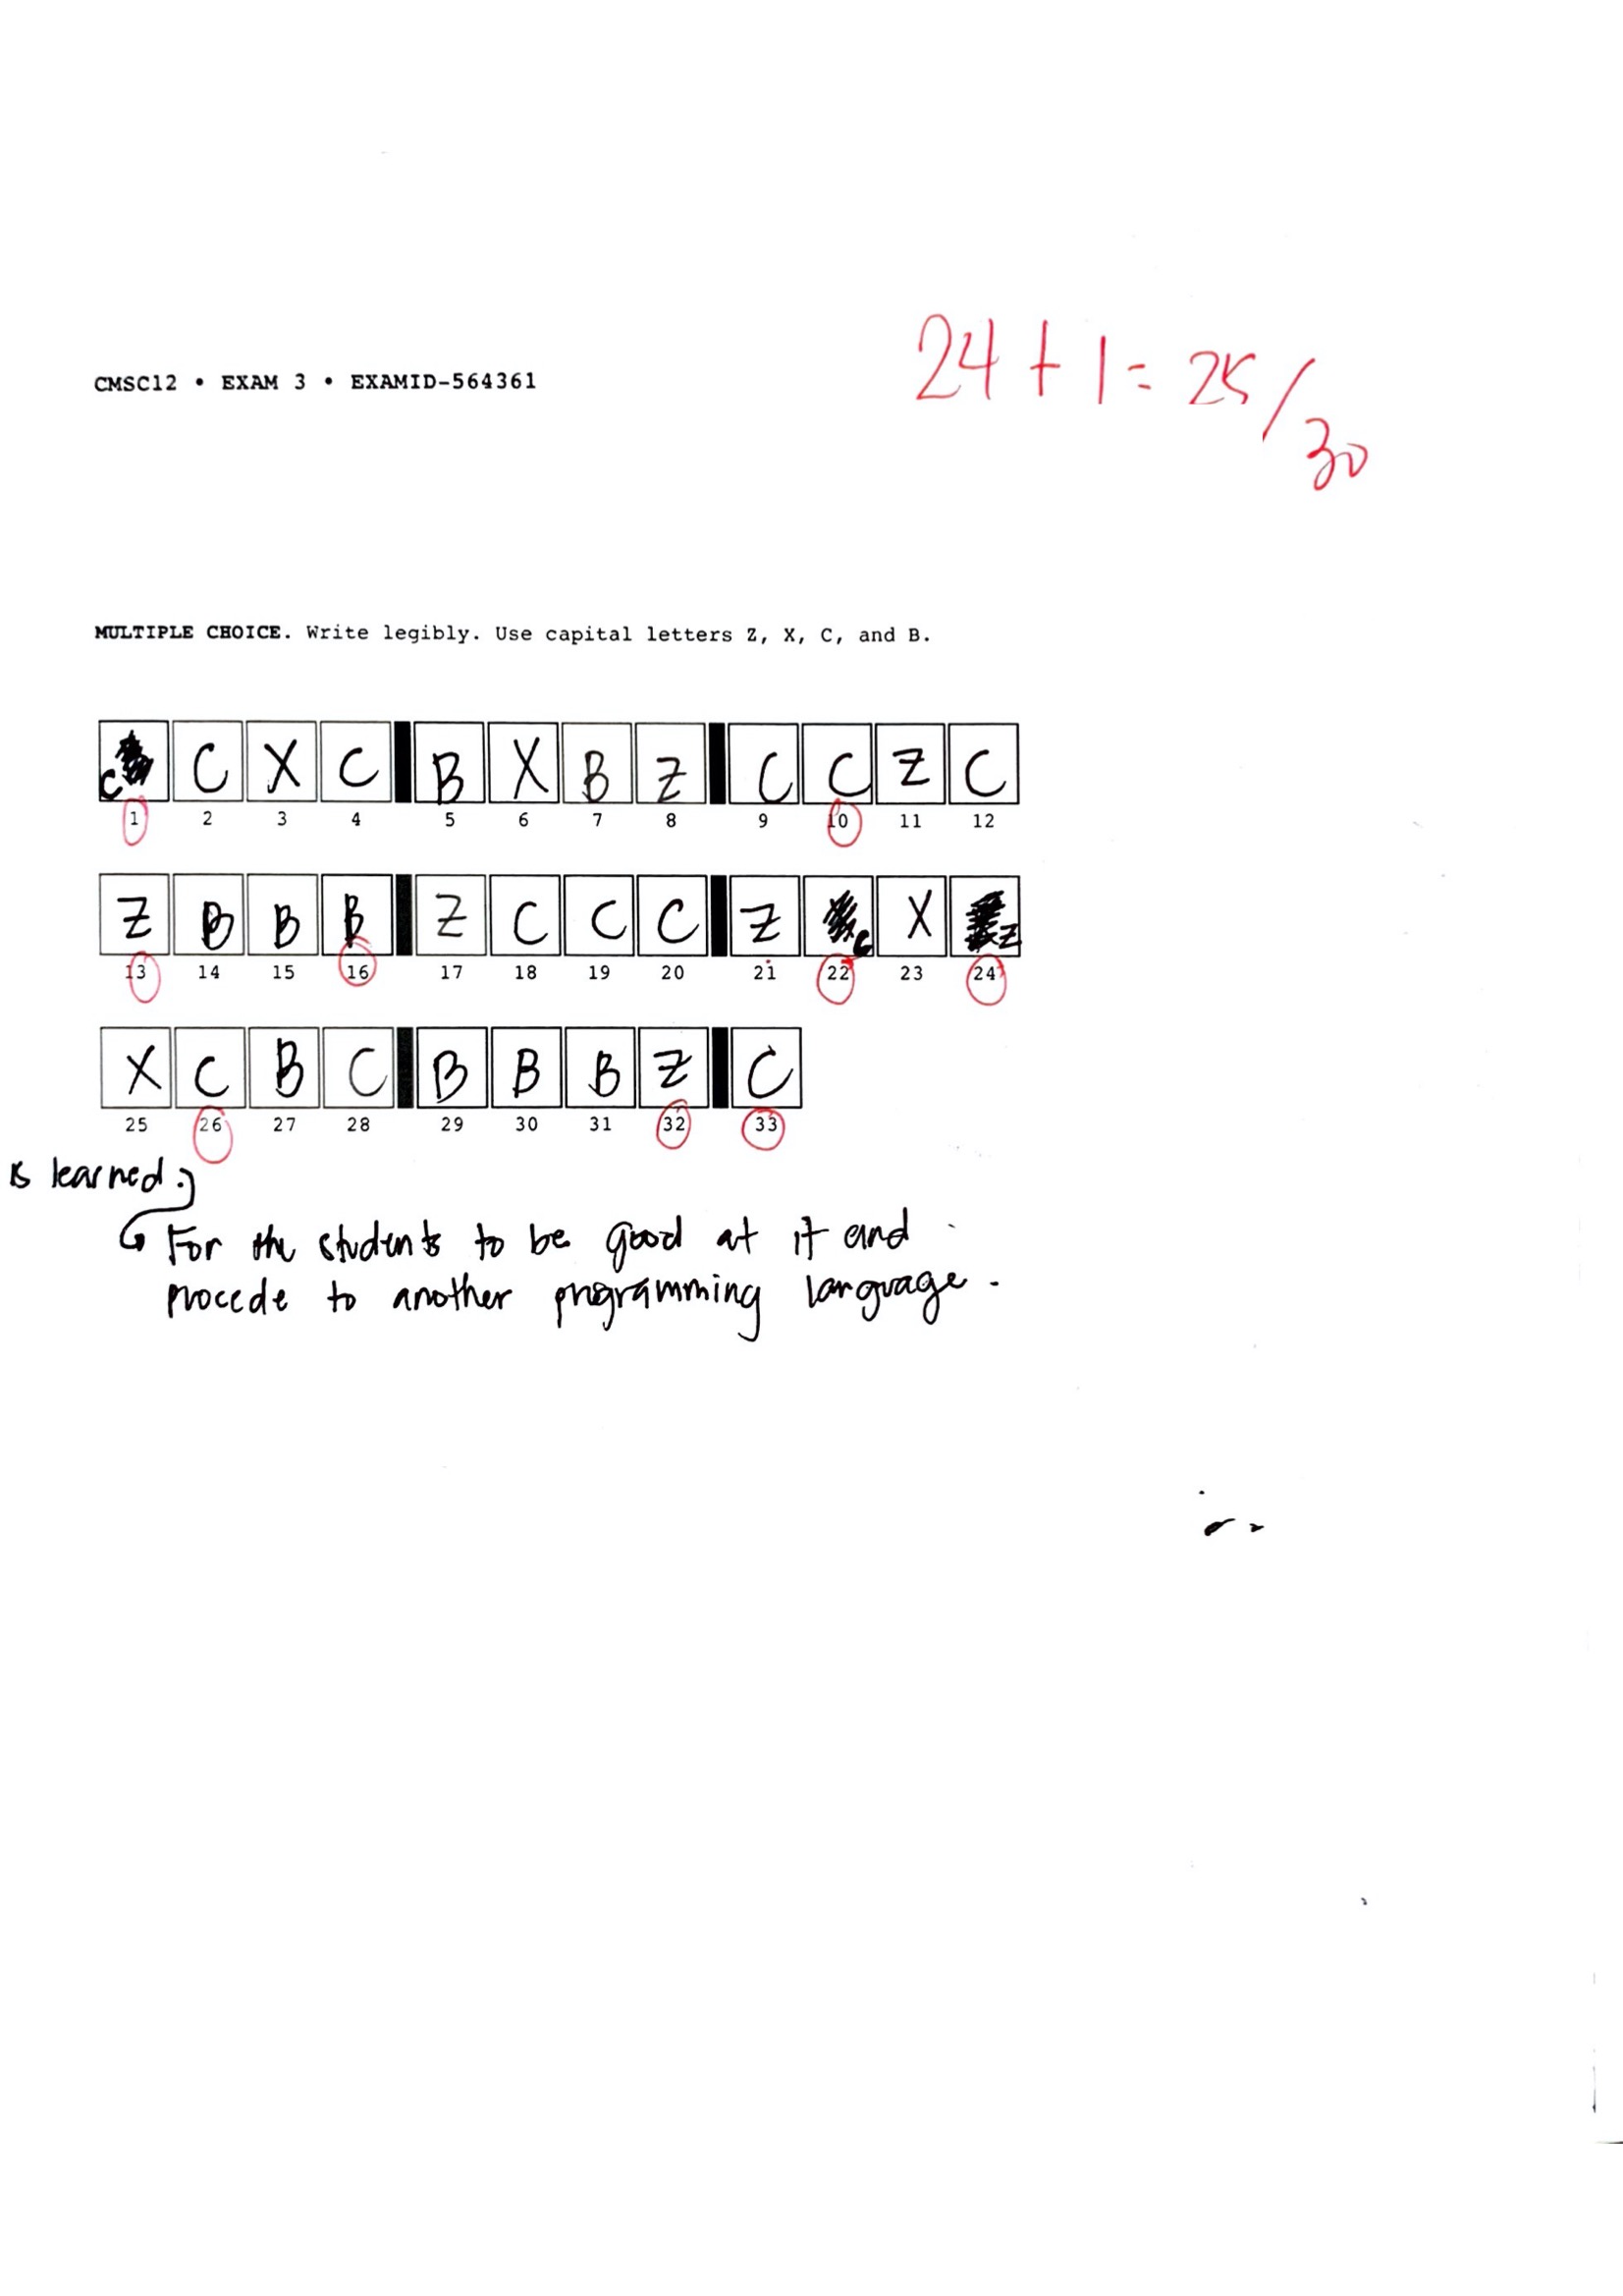 24 + 1 = 25/30
CMSC12 • EXAM 3 • EXAMID-564361
MULTIPLE CHOICE. Write legibly. Use capital letters Z, X, C, and B.
C C X C B X B Z C C Z C
1 2 3 4 5 6 7 8 9 10 11 12
Z B B B Z C C C Z C X Z
13 14 15 16 17 18 19 20 21 22 23 24
X C B C B B B Z C
25 26 27 28 29 30 31 32 33
is learned.
For the students to be good at it and
procede to another programming language.